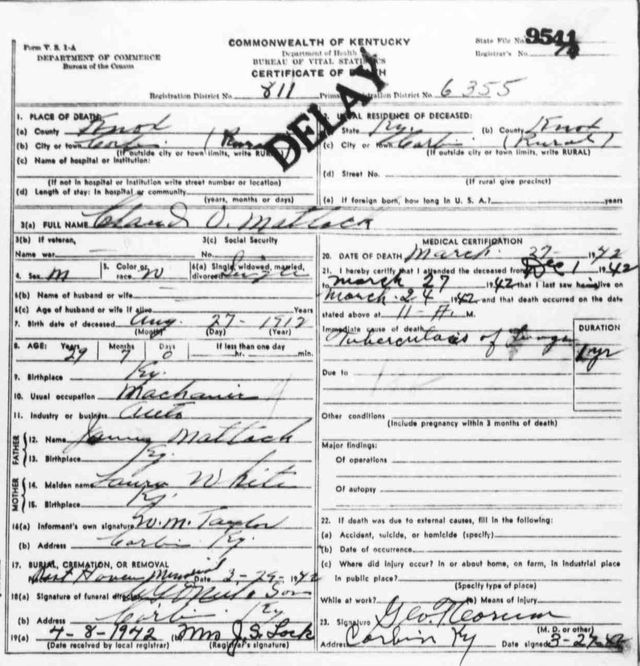 Form V. S. 1-A
DEPARTMENT OF COMMERCE
Bureau of the Census
COMMONWEALTH OF KENTUCKY
Department of Health
BUREAU OF VITAL STATISTICS
CERTIFICATE OF DEATH
State File No. 9541
Registrar's No. 74
Registration District No. 811 Primary Registration District No. 6355
DELAY
1. PLACE OF DEATH:
(a) County Knox
(b) City or town Corbin (Rural)
(If outside city or town limits, write RURAL)
(c) Name of hospital or institution:
(If not in hospital or institution write street number or location)
(d) Length of stay: In hospital or community
(years, months or days)
2. USUAL RESIDENCE OF DECEASED:
State Ky. (b) County Knox
(c) City or town Corbin (Rural)
(If outside city or town limits, write RURAL)
(d) Street No.
(If rural give precinct)
(e) If foreign born, how long in U. S. A.? years
3(a) FULL NAME Claud O. Matlock
3(b) If veteran, 3(c) Social Security
Name war No.
4. Sex M 5. Color or race W 6(a) Single, widowed, married, divorced Single
6(b) Name of husband or wife
6(c) Age of husband or wife if alive Years
7. Birth date of deceased Aug. 27 - 1912
(Month) (Day) (Year)
8. AGE: Years Months Days If less than one day
29 7 0 hr. min.
9. Birthplace Ky.
10. Usual occupation Machanic
11. Industry or business Auto
FATHER
12. Name James Matlock
13. Birthplace Ky.
MOTHER
14. Maiden name Laura White
15. Birthplace Ky.
16(a) Informant's own signature W. M. Taylor
(b) Address Corbin Ky.
17. BURIAL, CREMATION, OR REMOVAL
Haven Memorial Date 3-29- 1942
18(a) Signature of funeral director & Son
(b) Address Corbin Ky
19(a) 4-8-1942 Mrs J. S. Lock
(Date received by local registrar) (Registrar's signature)
MEDICAL CERTIFICATION
20. DATE OF DEATH March 27- 1942
21. I hereby certify that I attended the deceased from Dec 1 1942
to March 27 1942 that I last saw him alive on
March 24 1942 and that death occurred on the date
stated above at 11-A. M.
Immediate cause of death
Tuberculosis of Lungs
DURATION
1 yr
Due to
Other conditions
(Include pregnancy within 3 months of death)
Major findings:
Of operations
Of autopsy
22. If death was due to external causes, fill in the following:
(a) Accident, suicide, or homicide (specify)
(b) Date of occurrence
(c) Where did injury occur? In or about home, on farm, in industrial place
in public place?
(Specify type of place)
While at work? (e) Means of Injury
23. Signature Geo.
(M. D. or other)
Address Corbin Ky Date signed 3-27-42